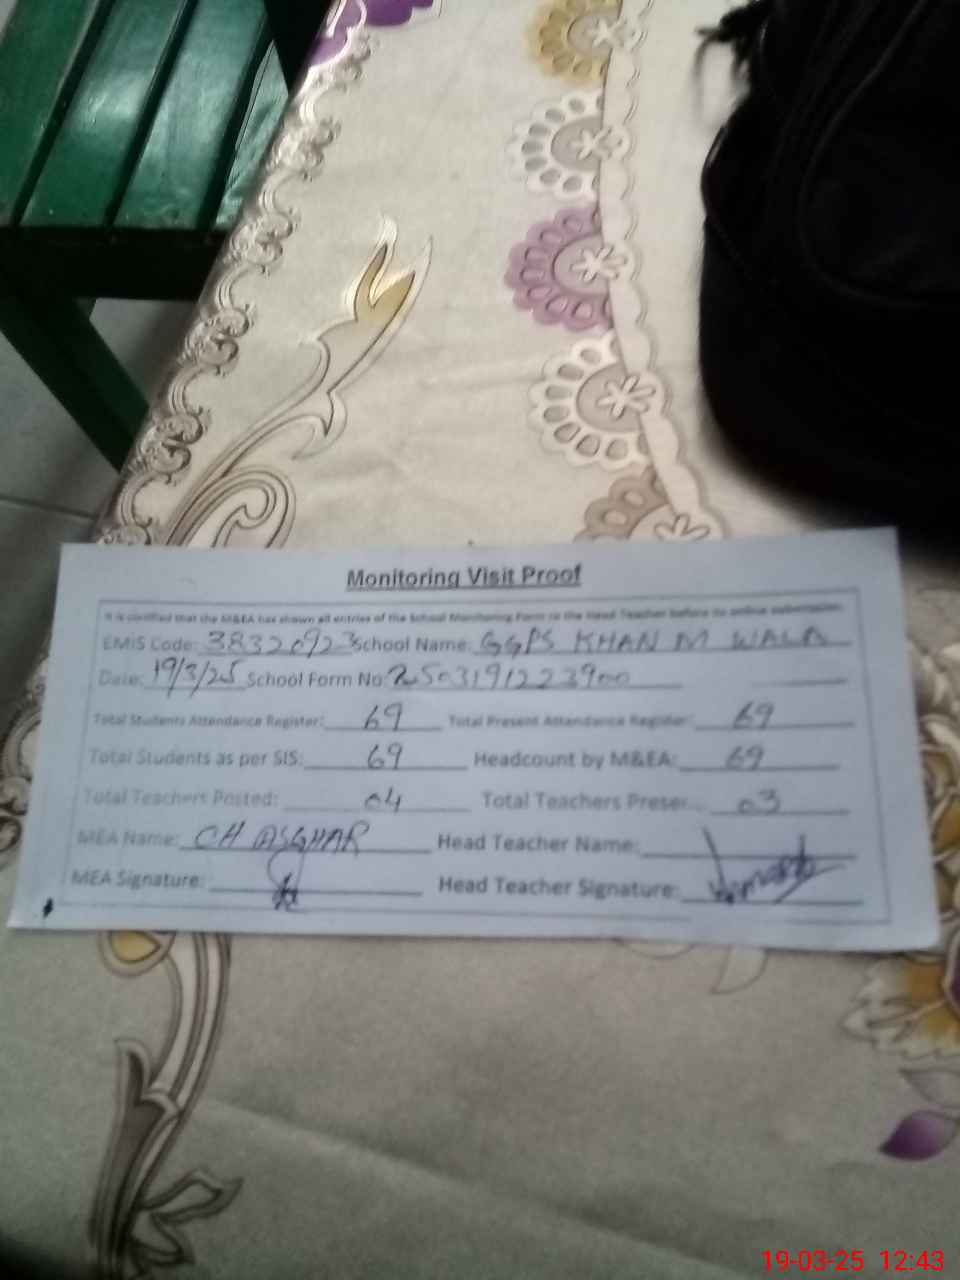 Monitoring Visit Proof
It is certified that the M&EA has shown all entries of the School Monitoring Form to the Head Teacher before its online submission.
EMIS Code: 38320923 School Name: GGPS KHAN M WALA
Date: 19/3/25 School Form No: 2503191223900
Total Students Attendance Register: 69 Total Present Attendance Register: 69
Total Students as per SIS: 69 Headcount by M&EA: 69
Total Teachers Posted: 04 Total Teachers Presen 03
MEA Name: CH ASGHAR Head Teacher Name:
MEA Signature: Head Teacher Signature:
19-03-25 12:43